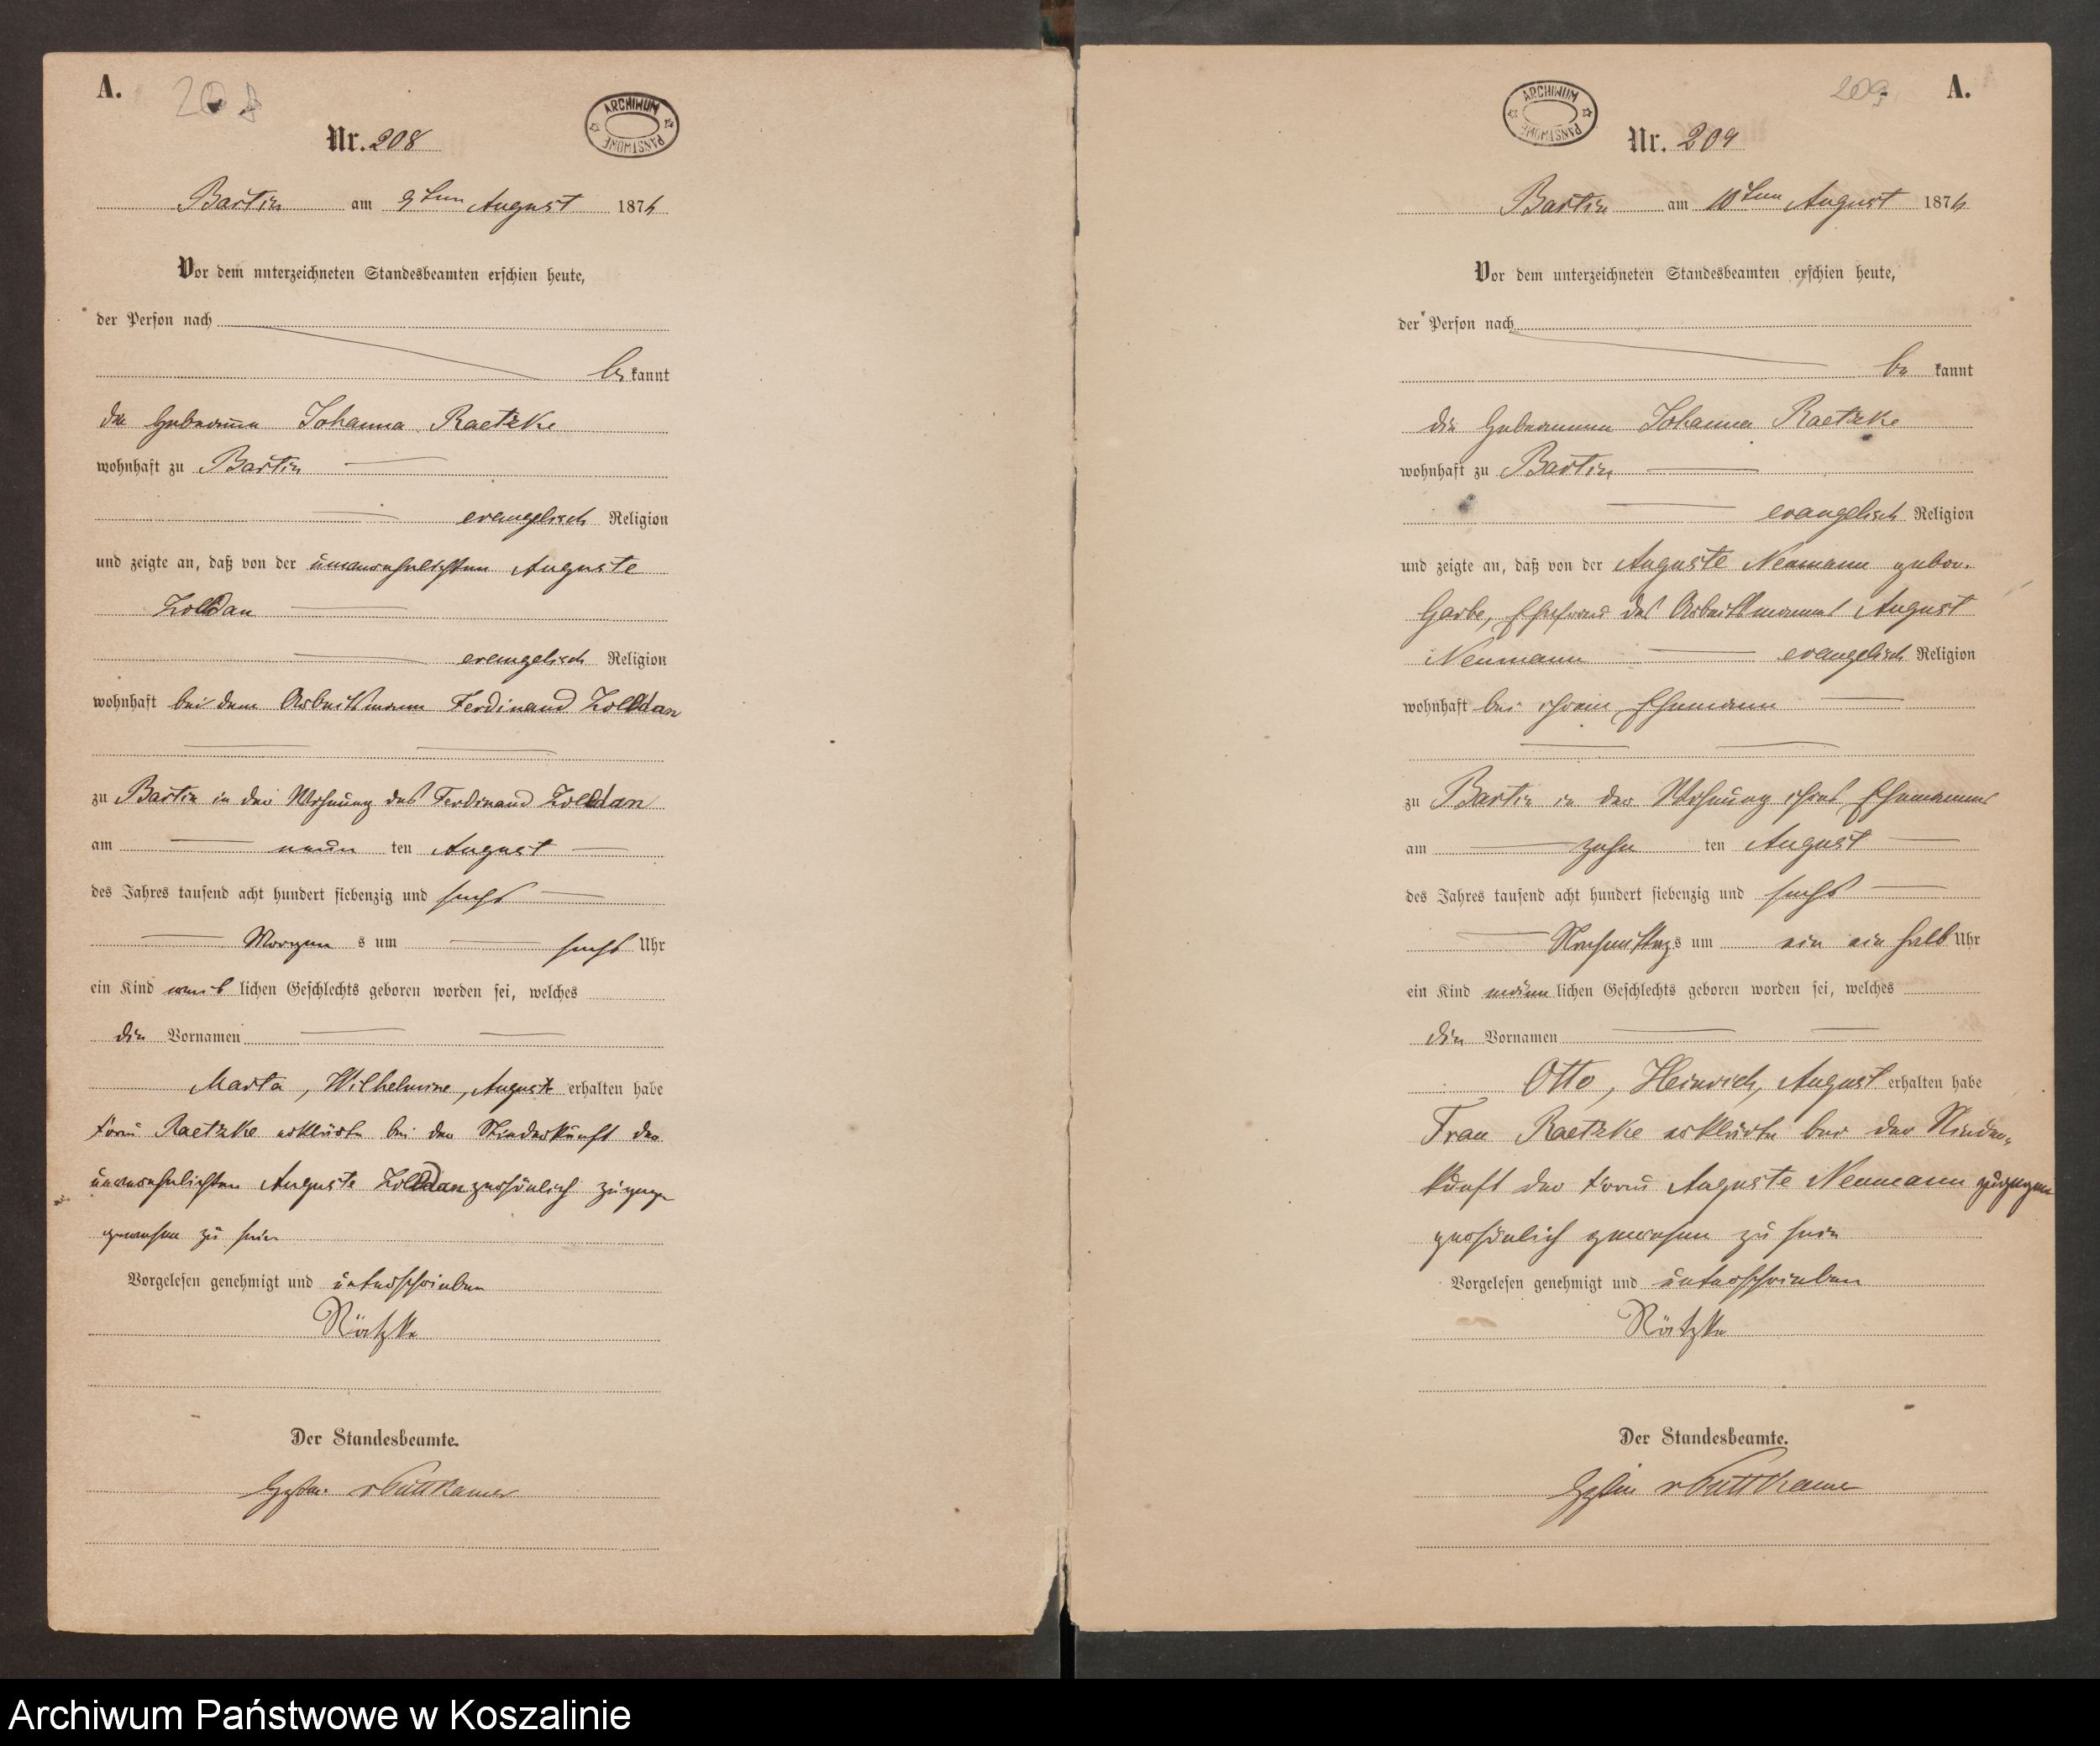 A.
208
ARCHIWUM PAŃSTWOWE
Nr. 208
Bartin am 9ten August 1876
Vor dem unterzeichneten Standesbeamten erschien heute,
der Person nach
be kannt
die Hebamme Johanna Raetzke
wohnhaft zu Bartin
evangelisch Religion
und zeigte an, daß von der unverehelichten Auguste
Zolldan
evangelisch Religion
wohnhaft bei dem Arbeitsmann Ferdinand Zolldan
zu Bartin in der Wohnung des Ferdinand Zolldan
am neun ten August
des Jahres tausend acht hundert siebenzig und sechs
Morgen s um sechs Uhr
ein Kind weib lichen Geschlechts geboren worden sei, welches
die Vornamen
Marta, Wilhelmine, Auguste erhalten habe
Frau Raetzke erklärte bei der Niederkunft der
unverehelichten Auguste Zolldan persönlich zugegen
gewesen zu sein
Vorgelesen genehmigt und unterschrieben
Rätzke
Der Standesbeamte.
v Puttkamer
209
A.
ARCHIWUM PAŃSTWOWE
Nr. 209
Bartin am 10ten August 1876
Vor dem unterzeichneten Standesbeamten erschien heute,
der Person nach
be kannt
die Hebamme Johanna Raetzke
wohnhaft zu Bartin
evangelisch Religion
und zeigte an, daß von der Auguste Neumann gebor.
Garbe, Ehefrau des Arbeitsmannes August
Neumann evangelisch Religion
wohnhaft bei ihrem Ehemann
zu Bartin in der Wohnung ihres Ehemannes
am zehn ten August
des Jahres tausend acht hundert siebenzig und sechs
Nachmittag s um ein ein halb Uhr
ein Kind männ lichen Geschlechts geboren worden sei, welches
die Vornamen
Otto, Heinrich, August erhalten habe
Frau Raetzke erklärte bei der Nieder-
kunft der Frau Auguste Neumann zugegen
persönlich gewesen zu sein
Vorgelesen genehmigt und unterschrieben
Rätzke
Der Standesbeamte.
v Puttkamer
Archiwum Państwowe w Koszalinie